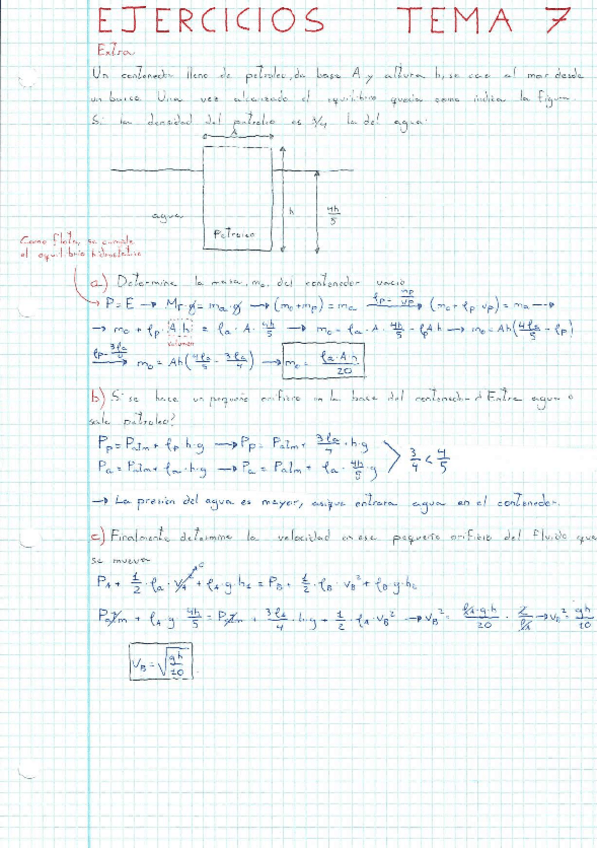 EJERCICIOS TEMA 7
Extra
Un contenedor lleno de petroleo, de base A y altura h, se cae al mar desde
un barco. Una vez alcanzado el equilibrio queda como indica la figura.
Si la densidad del petroleo es 3/4 la del agua:
A
h
4h/5
agua
Petroleo
Como flota, se cumple
el equilibrio hidrostático
a) Determine la masa, m₀, del contenedor vacío
P=E → M_T·g = m_a·g → (m₀+m_p) = m_a → ρ_p = m_p/v_p → (m₀+ρ_p v_p) = m_a →
→ m₀ + ρ_p·A·h = ρ_a·A·4h/5 → m₀ = ρ_a·A·4h/5 - ρ_p A h → m₀ = Ah(4ρ_a/5 - ρ_p)
volumen
ρ_p = 3ρ_a/4 → m₀ = Ah(4ρ_a/5 - 3ρ_a/4) → m₀ = ρ_a·A·h/20
b) Si se hace un pequeño orificio en la base del contenedor ¿Entra agua o
sale petroleo?
P_p = P_atm + ρ_p h·g → P_p = P_atm + 3ρ_a/4·h·g
P_a = P_atm + ρ_a·h·g → P_a = P_atm + ρ_a·4h/5·g
3/4 < 4/5
→ La presion del agua es mayor, asique entrara agua en el contenedor.
c) Finalmente determine la velocidad en ese pequeño orificio del fluido que
se mueva
P_A + 1/2·ρ_a·v_A² + ρ_A·g·h_c = P_B + 1/2·ρ_B·v_B² + ρ_B g·h_c
P_atm + ρ_A g 4h/5 = P_atm + 3ρ_A/4·h·g + 1/2·ρ_A·v_B² → v_B² = ρ_A·g·h/20 · 2/ρ_A → v_B² = gh/10
v_B = √(gh/10)